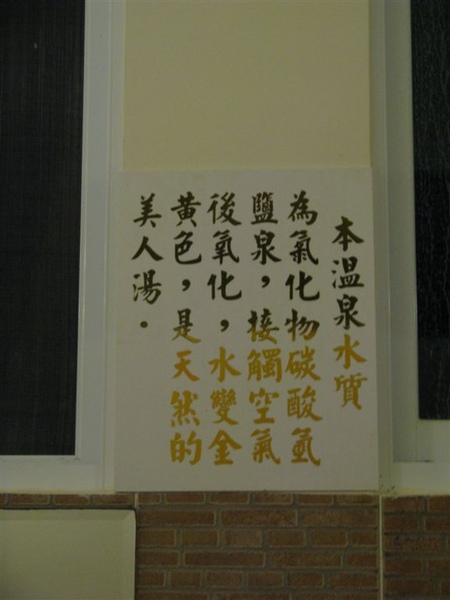 本溫泉水質
為氯化物碳酸氫
鹽泉，接觸空氣
後氧化，水變金
黃色，是天然的
美人湯．